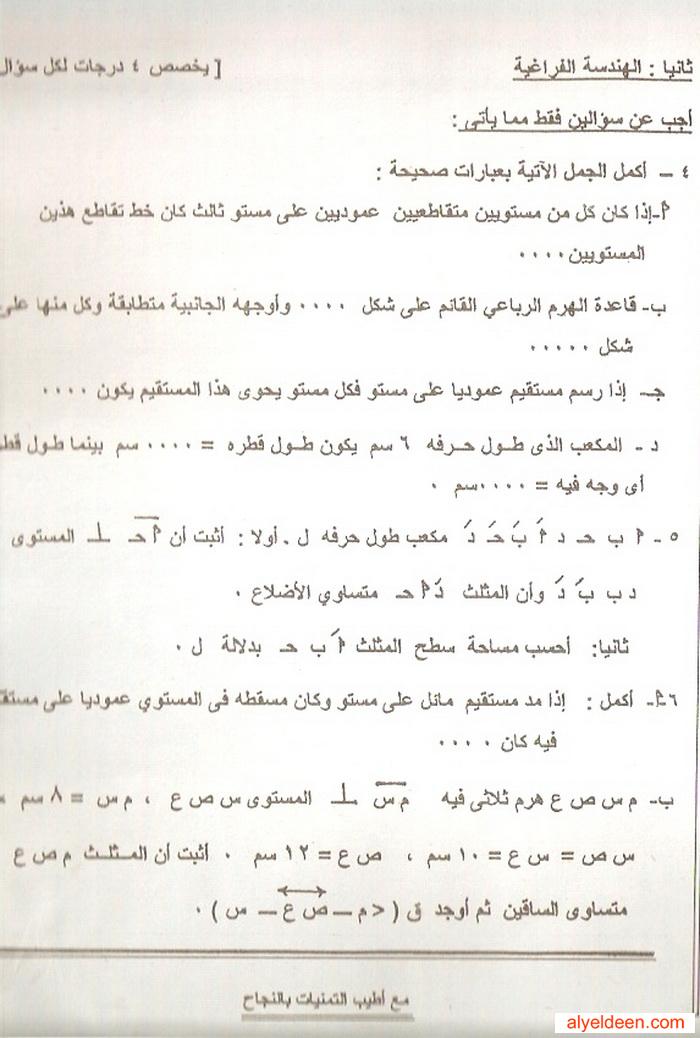 ثانيا : الهندسة الفراغية [ يخصص ٤ درجات لكل سؤال
أجب عن سؤالين فقط مما يأتى :
٤ - أكمل الجمل الآتية بعبارات صحيحة :
أ-إذا كان كل من مستويين متقاطعيين عموديين على مستو ثالث كان خط تقاطع هذين
المستويين ....
ب- قاعدة الهرم الرباعي القائم على شكل .... وأوجهه الجانبية متطابقة وكل منها على
شكل .....
جـ- إذا رسم مستقيم عموديا على مستو فكل مستو يحوى هذا المستقيم يكون ....
د - المكعب الذى طول حرفه ٦ سم يكون طول قطره = .... سم بينما طول قطر
أى وجه فيه = ....سم .
٥ - أ ب حـ د أَ بَ حَـ دَ مكعب طول حرفه ل . أولا : أثبت أن أحـ ⊥ المستوى
د ب بَ دَ وأن المثلث دَ أ حـ متساوي الأضلاع .
ثانيا: أحسب مساحة سطح المثلث أَ ب حـ بدلالة ل .
٦أ- أكمل : إذا مد مستقيم مائل على مستو وكان مسقطه فى المستوي عموديا على
فيه كان ....
ب- م س ص ع هرم ثلاثى فيه م س ⊥ المستوى س ص ع ، م س = ٨ سم
س ص = س ع = ١٠ سم ، ص ع = ١٢ سم . أثبت أن المثلث م ص ع
متساوى الساقين ثم أوجد ق ( < م – ص ع – س ) .
مع أطيب التمنيات بالنجاح
alyeldeen.com